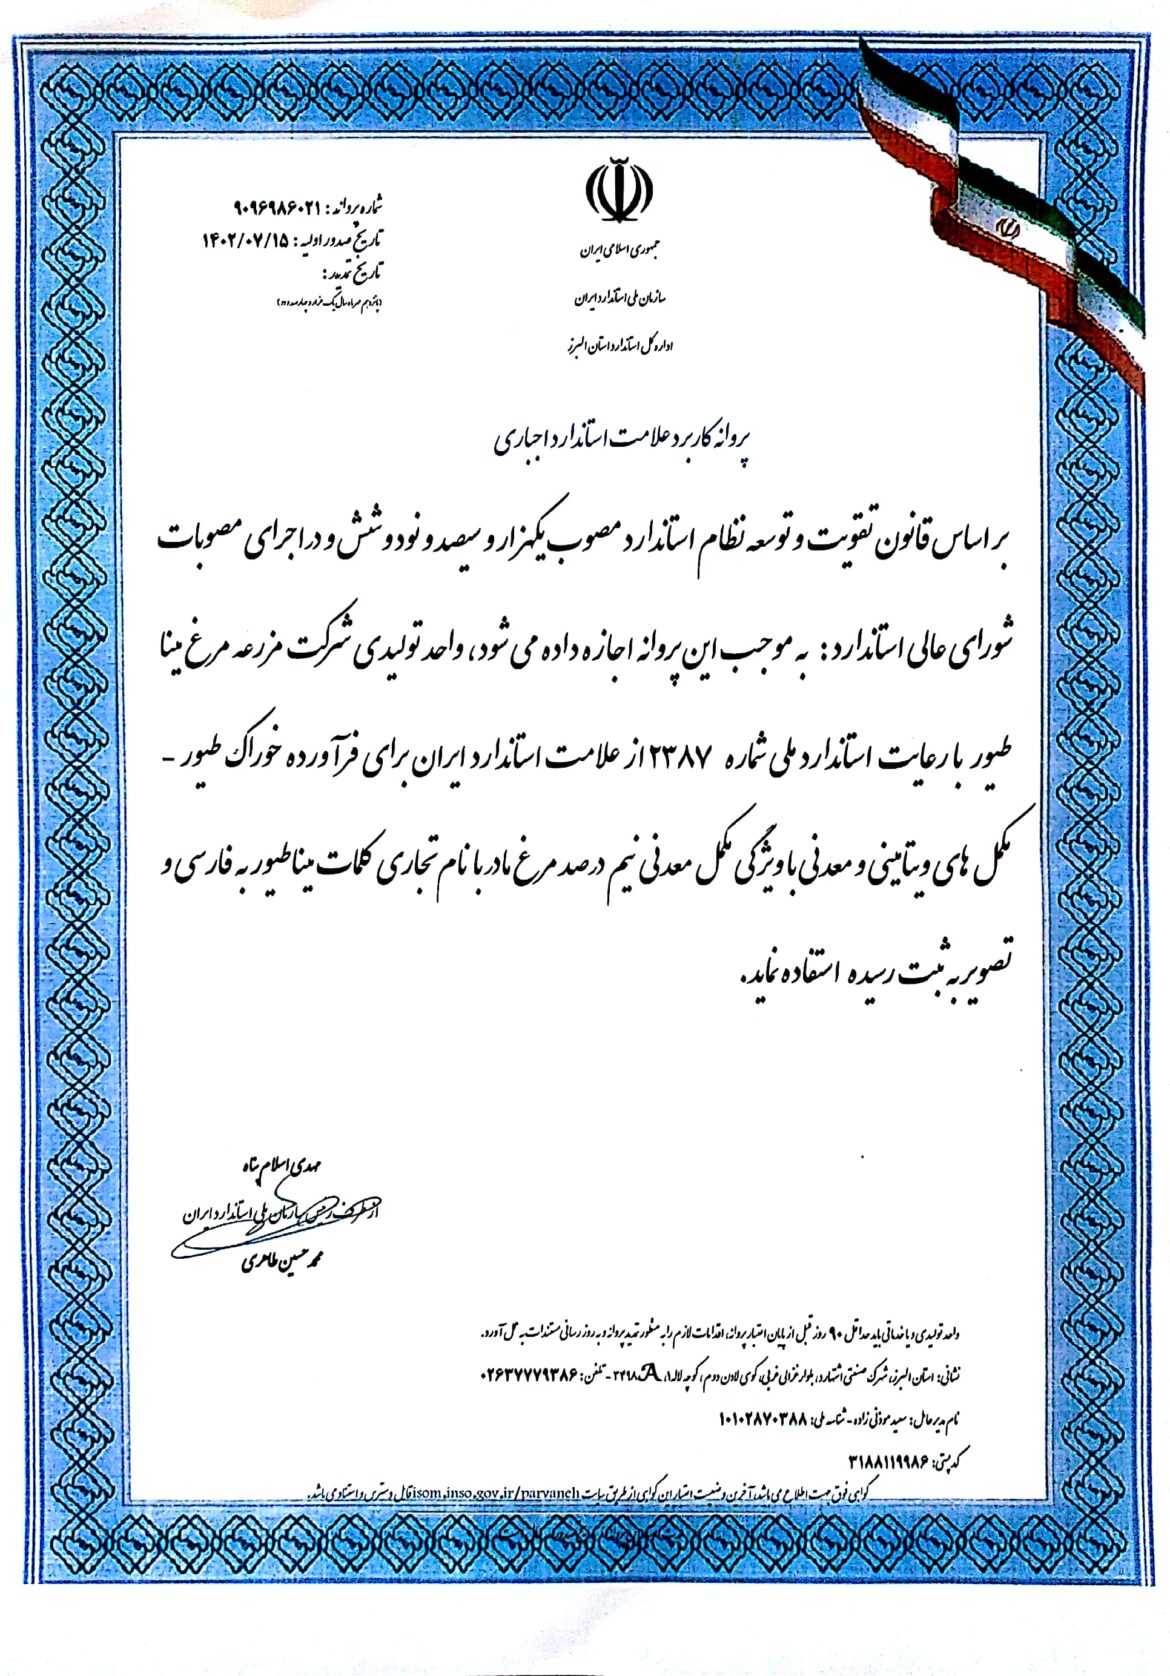 جمهوری اسلامی ایران
سازمان ملی استاندارد ایران
اداره کل استاندارد استان البرز
شماره پروانه : ۹۰۹۶۹۸۶۰۲۱
تاریخ صدور اولیه : ۱۴۰۲/۰۷/۱۵
تاریخ تمدید :
(پانزدهم مهر ماه سال یک هزار و چهارصد و دو)
پروانه کاربرد علامت استاندارد اجباری
بر اساس قانون تقویت و توسعه نظام استاندارد مصوب یکهزار و سیصد و نود و شش و در اجرای مصوبات
شورای عالی استاندارد : به موجب این پروانه اجازه داده می شود، واحد تولیدی شرکت مزرعه مرغ مینا
طیور با رعایت استاندارد ملی شماره ۲۳۸۷ از علامت استاندارد ایران برای فرآورده خوراک طیور -
مکمل های ویتامینی و معدنی با ویژگی مکمل معدنی نیم درصد مرغ مادر با نام تجاری کلمات میناطیور به فارسی و
تصویر به ثبت رسیده استفاده نماید.
مهدی اسلام پناه
از طرف رئیس سازمان ملی استاندارد ایران
محمد حسین طاهری
واحد تولیدی و یا خدماتی باید حداقل ۹۰ روز قبل از پایان اعتبار پروانه، اقدامات لازم را به منظور تمدید پروانه و به روز رسانی مستندات به عمل آورد.
نشانی: استان البرز، شهرک صنعتی اشتهارد، بلوار غزالی غربی، کوی لادن دوم، کوچه لاله۱، ۳۲۹۸A - تلفن: ۰۲۶۳۷۷۷۹۳۸۶
نام مدیر عامل: سعید موذنی زاده - شناسه ملی: ۱۰۱۰۲۸۷۰۳۸۸
کد پستی: ۳۱۸۸۱۱۹۹۸۶
گواهی فوق جهت اطلاع می باشد، آخرین وضعیت اعتبار این گواهی از طریق سایت isom.inso.gov.ir/parvaneh قابل دسترس و استناد می باشد.